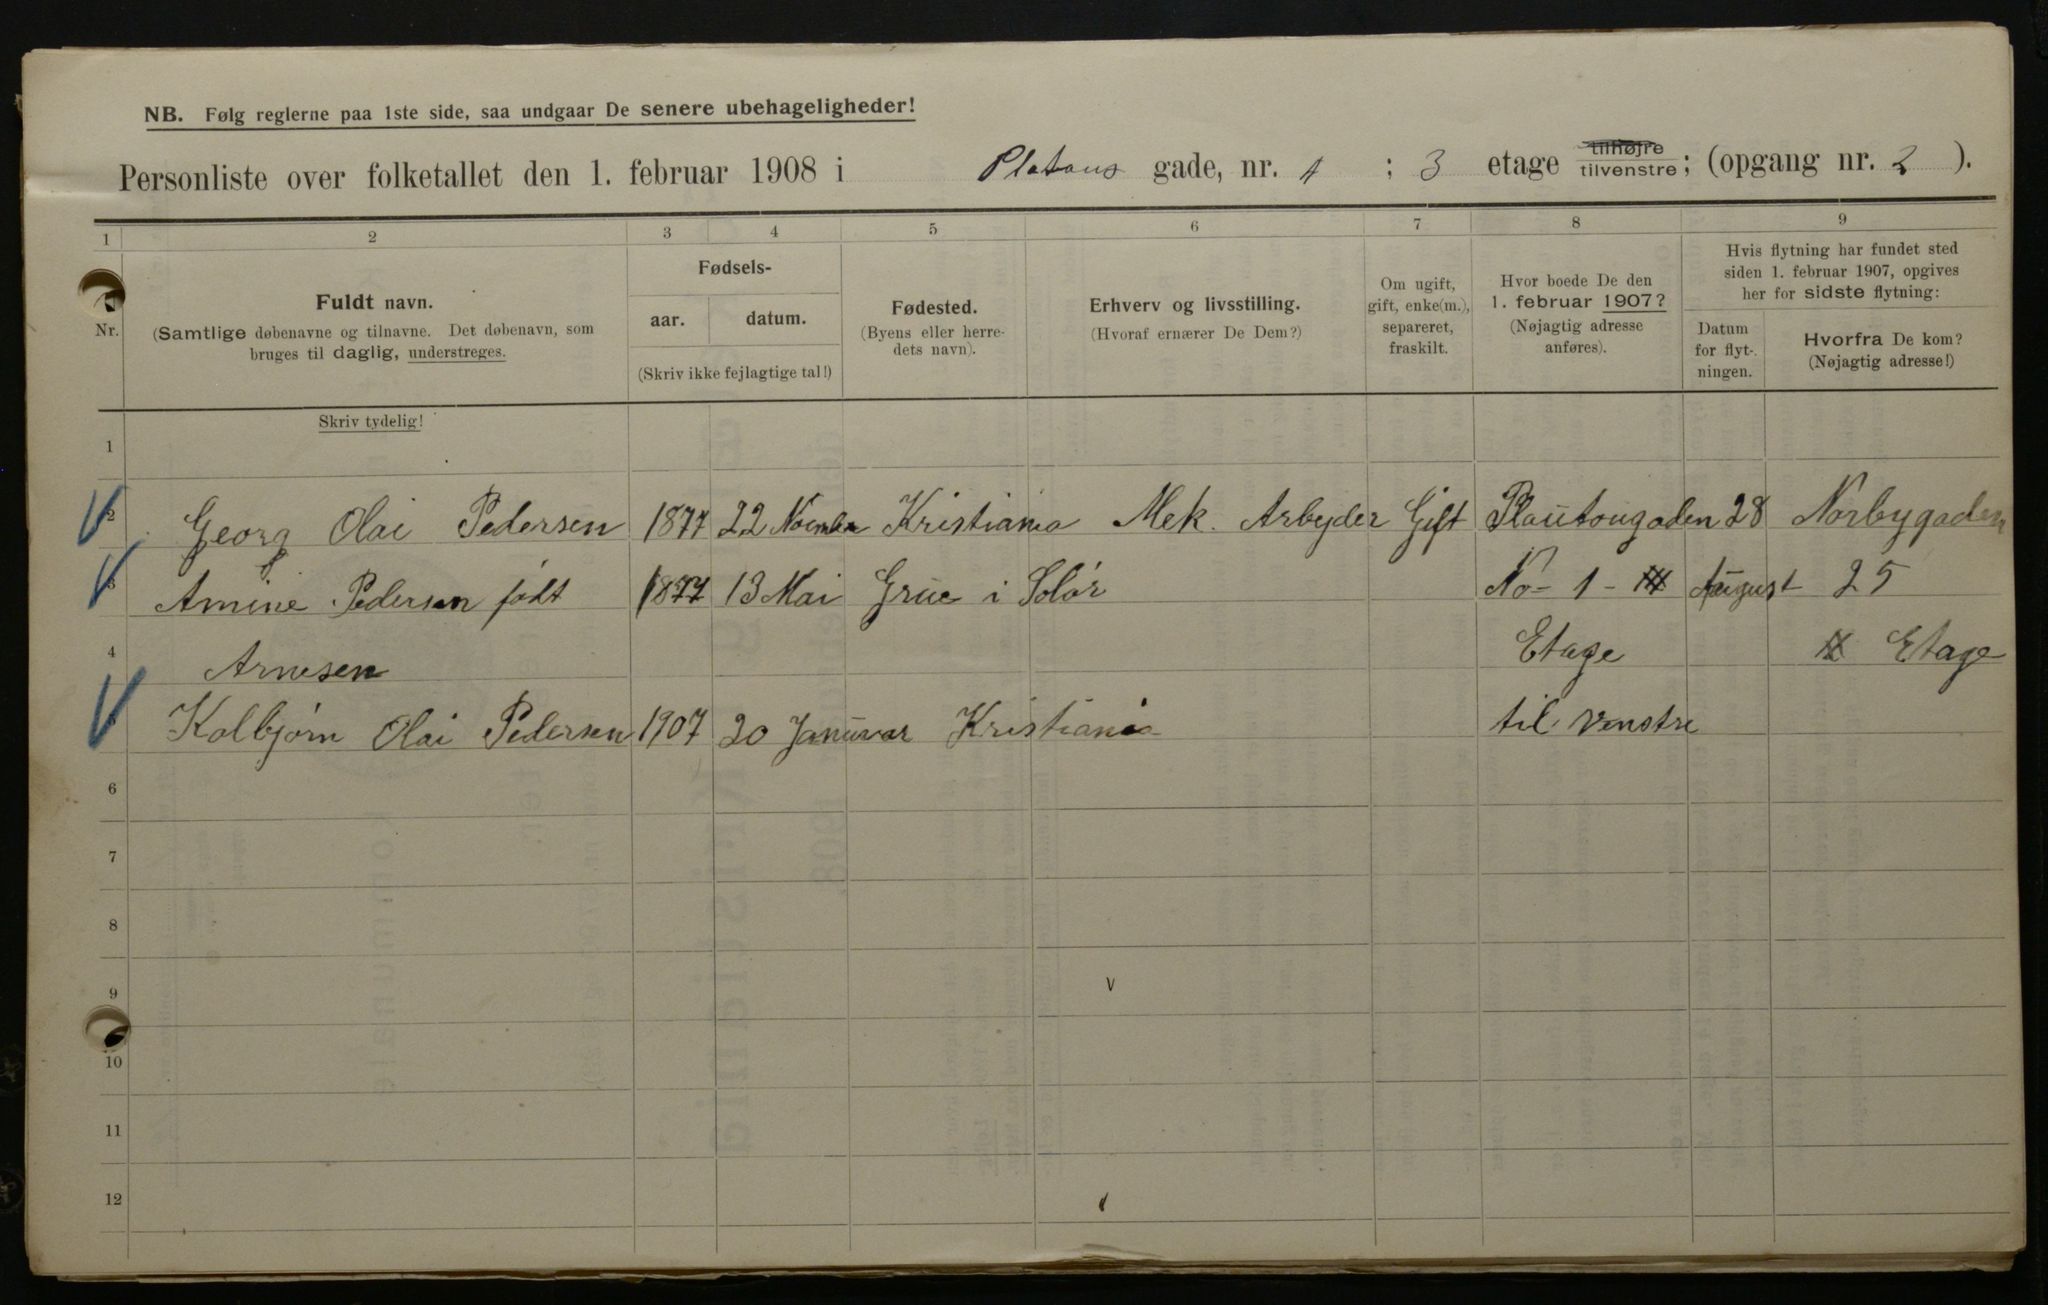 NB. Følg reglerne paa 1ste side, saa undgaar De senere ubehageligheder!
Personliste over folketallet den 1. februar 1908 i Platous gade, nr. 1 ; 3 etage tilhøjre tilvenstre; (opgang nr. 2 ).
1 2 3 4 5 6 7 8 9
Nr.
Fuldt navn.
(Samtlige døbenavne og tilnavne. Det døbenavn, som
bruges til daglig, understreges.
Skriv tydelig!
Fødsels-
aar. datum.
(Skriv ikke fejlagtige tal!)
Fødested.
(Byens eller herre-
dets navn).
Erhverv og livsstilling.
(Hvoraf ernærer De Dem?)
Om ugift,
gift, enke(m.),
separeret,
fraskilt.
Hvor boede De den
1. februar 1907?
(Nøjagtig adresse
anføres).
Hvis flytning har fundet sted
siden 1. februar 1907, opgives
her for sidste flytning:
Datum
for flyt-
ningen.
Hvorfra De kom?
(Nøjagtig adresse!)
1
2 Georg Olai Pedersen 1877 22 November Kristiania Mek. Arbejder Gift Plautougaden 28 Norbygaden
3 Amine Pedersen født 1877 13 Mai Grue i Solør No - 1 - August 25
4 Arnesen Etage Etage
5 Kolbjørn Olai Pedersen 1907 20 Januvar Kristiania til venstre
6
7
8
9
10
11
12